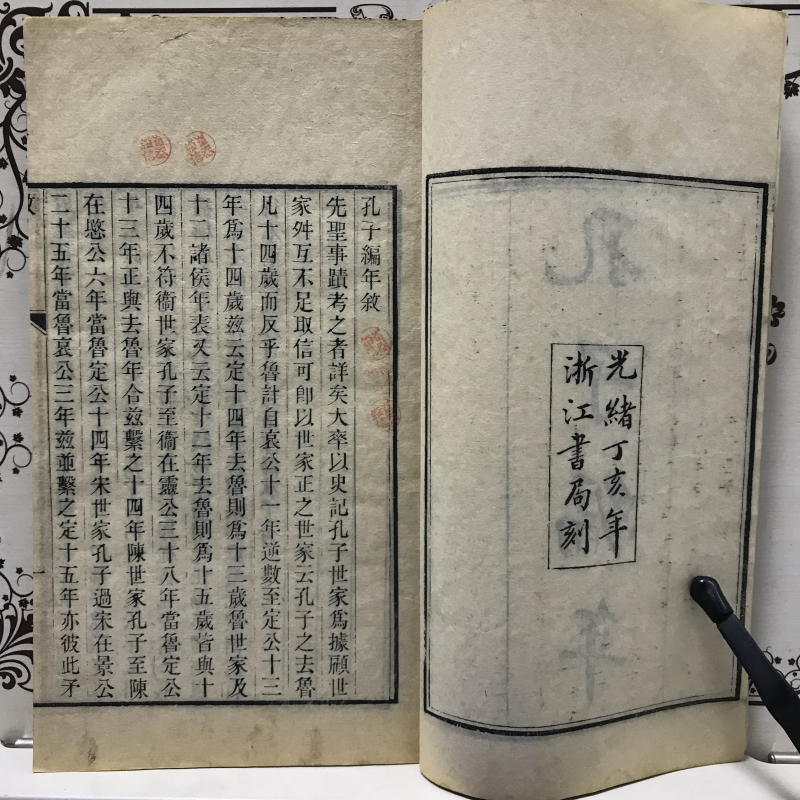 光緒丁亥年
浙江書局刻
孔子編年敘
先聖事蹟考之者詳矣大率以史記孔子世家爲據顧世
家舛互不足取信可卽以世家正之世家云孔子之去魯
凡十四歲而反乎魯計自哀公十一年逆數至定公十三
年爲十四歲兹云定十四年去魯則爲十三歲魯世家及
十二諸侯年表又云定十二年去魯則爲十五歲皆與十
四歲不符衞世家孔子至衞在靈公三十八年當魯定公
十三年正與去魯年合兹繫之十四年陳世家孔子至陳
在愍公六年當魯定公十四年宋世家孔子過宋在景公
二十五年當魯哀公三年兹並繫之定十五年亦彼此矛